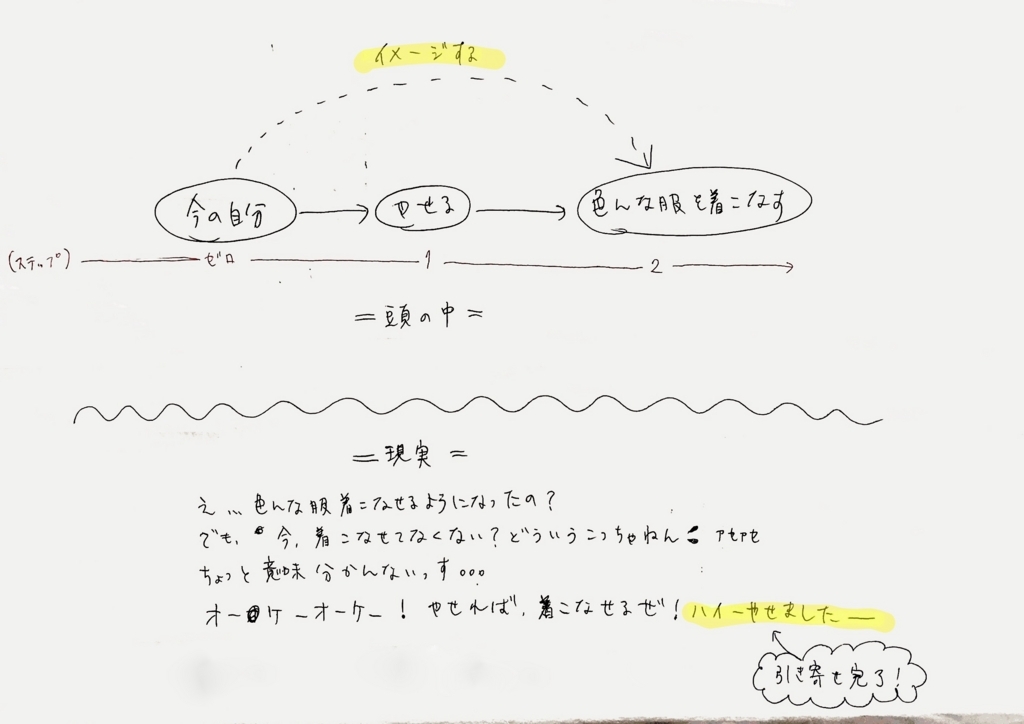 イメージする
今の自分
やせる
色んな服を着こなす
(ステップ) ゼロ 1 2
=頭の中=
=現実=
え… 色んな服着こなせるようになったの?
でも、今、着こなせてなくない?どういうこっちゃねん アセアセ
ちょっと意味分かんないっす。。。
オーケーオーケー!やせれば、着こなせるぜ!ハイーやせましたー
引き寄せ完了!